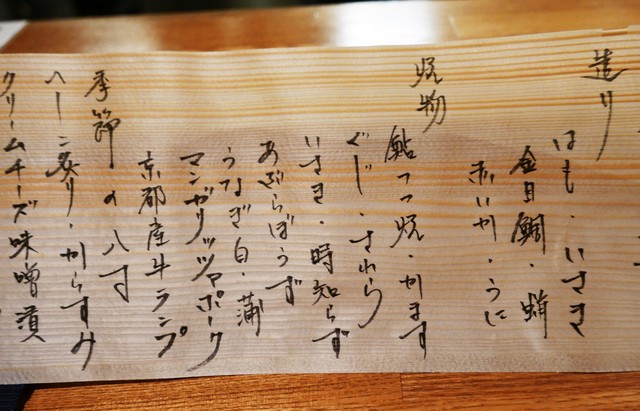 造り
はも・いさき
金目鯛・蛸
赤いか・うに
焼物
鮎一つ焼・かます
ぐじ・さわら
いさき・時知らず
あぶらぼうず
うなぎ白・蒲
マンガリッツァポーク
京都産牛ランプ
季節の八寸
へしこ炙り・からすみ
クリームチーズ味噌漬